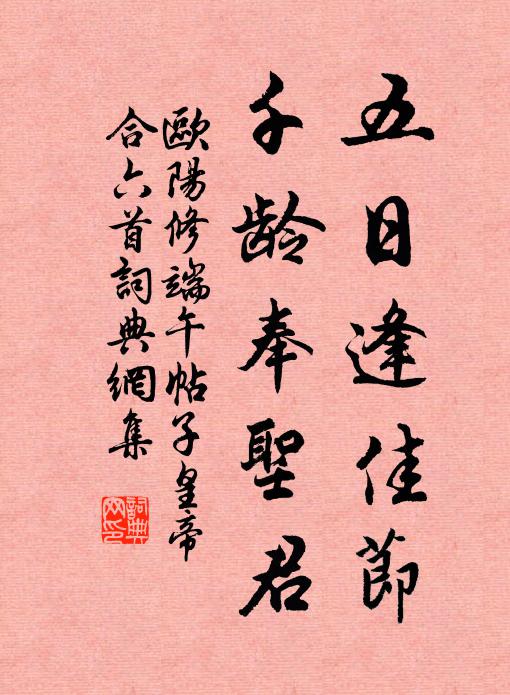 五日逢佳節
千齡奉聖君
歐陽修端午帖子皇帝
合六首詞典網集
詞典
网印